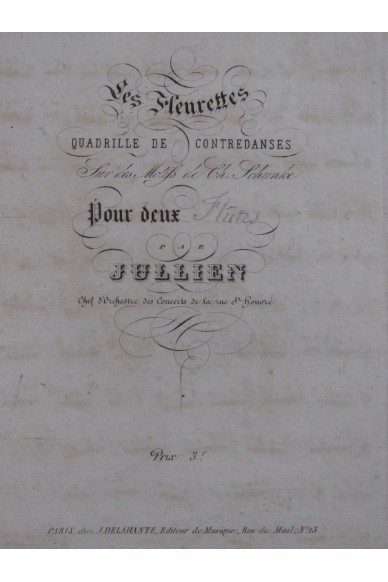 Les Fleurettes
QUADRILLE DE CONTREDANSES
Sur des Motifs de Ch. Schunke
Pour deux Flûtes
PAR
JULLIEN
Chef d'Orchestre des Concerts de la rue St. Honoré
Prix 3f
PARIS, chez J. DELAHANTE, Editeur de Musique, Rue du Mail, No. 13